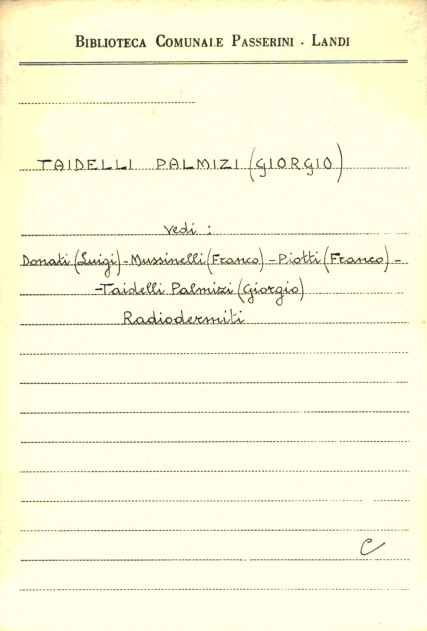 BIBLIOTECA COMUNALE PASSERINI - LANDI
TAIDELLI PALMIZI (GIORGIO)
Vedi :
Donati (Luigi) - Mussinelli (Franco) - Piotti (Franco) -
-Taidelli Palmizi (Giorgio)
Radiodermiti
C